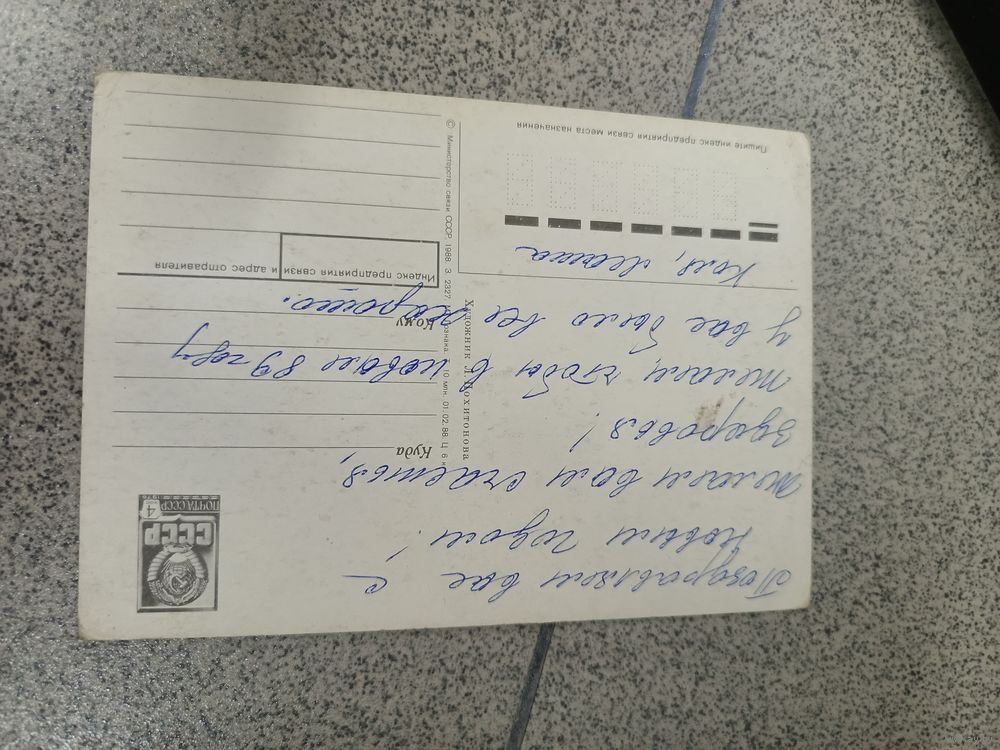 Поздравляем вас с
Новым годом!
Желаем вам счастья,
здоровья!
Желаем, чтобы в новом 89 году
у вас было все хорошо.
Коля,
ПОЧТА СССР
1976
4
СССР
Куда
Кому
Индекс предприятия связи и адрес отправителя
© Министерство связи СССР. 1988. З. 2327. 10 млн. 01.02.88. Ц. 6 к.
Художник Л. Похитонова
Пишите индекс предприятия связи места назначения